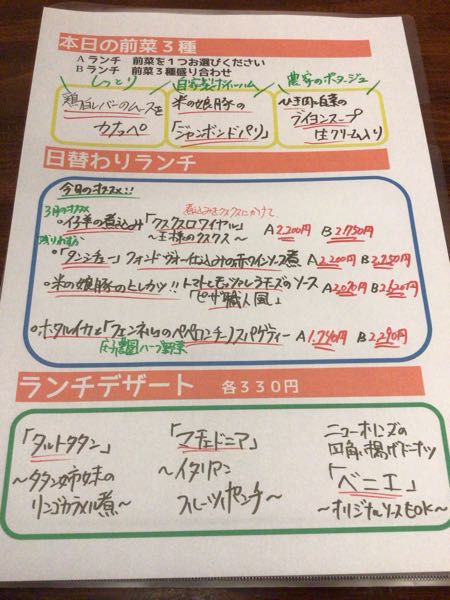 本日の前菜３種
Aランチ 前菜を１つお選びください
Bランチ 前菜３種盛り合わせ
しっとり
鶏白レバーのムースを
カナッペ
自家製
ハム
米の娘豚の
「ジャンボンドパリ」
農家のポタージュ
白菜の
ライヨンスープ
生クリーム入り
日替わりランチ
今日のオススメ!!
3月のオススメ
煮込みをクスクスにかけて
・仔羊の煮込み「クスクスロワイヤル」 A 2,200円 B 2,750円
〜王様のクスクス〜
残りわずか
・「タンシチュー」フォンドヴォー仕込みの赤ワインソース煮 A 2,200円 B 2,750円
・米の娘豚のヒレカツ!!トマトとモッツァレラチーズのソース A 2,070円 B 2,620円
「ピザ職人風」
・ホタルイカと「フェンネル」のペペロンチーノスパゲティー A 1,740円 B 2,290円
庄子農園ハーブ野菜
ランチデザート 各３３０円
「タルトタタン」
〜タタン姉妹の
リンゴカラメル煮〜
「マチェドニア」
〜イタリアン
フルーツポンチ〜
ニューオリンズの
四角い揚げドーナツ
「ベニエ」
〜オリジナルソースもOK〜